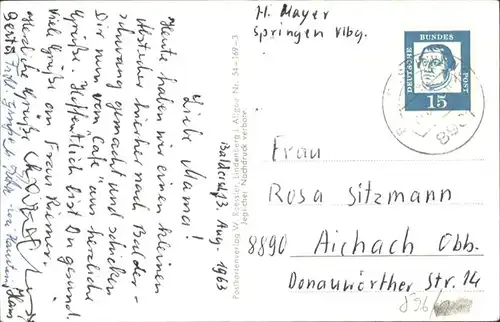 H. Mayer
Springen Vlbg.
DEUTSCHE
BUNDES
POST
15
890
Frau
Rosa Sitzmann
8890 Aichach Obb.
Donauwörther Str. 14
Balderschw. 13. Aug. 1963
Liebe Mama!
Heute haben wir einen kleinen
Abstecher hierher nach Balder-
schwang gemacht und schicken
Dir nun vom "Café" aus herzliche
Grüße. Hoffentlich bist Du gesund.
Viele Grüße an Frau
Herzliche Grüße
Gerta
Postkartenverlag W. Lindenberg i. Allgäu Nr. 54-169-3
Jeglicher Nachdruck verboten